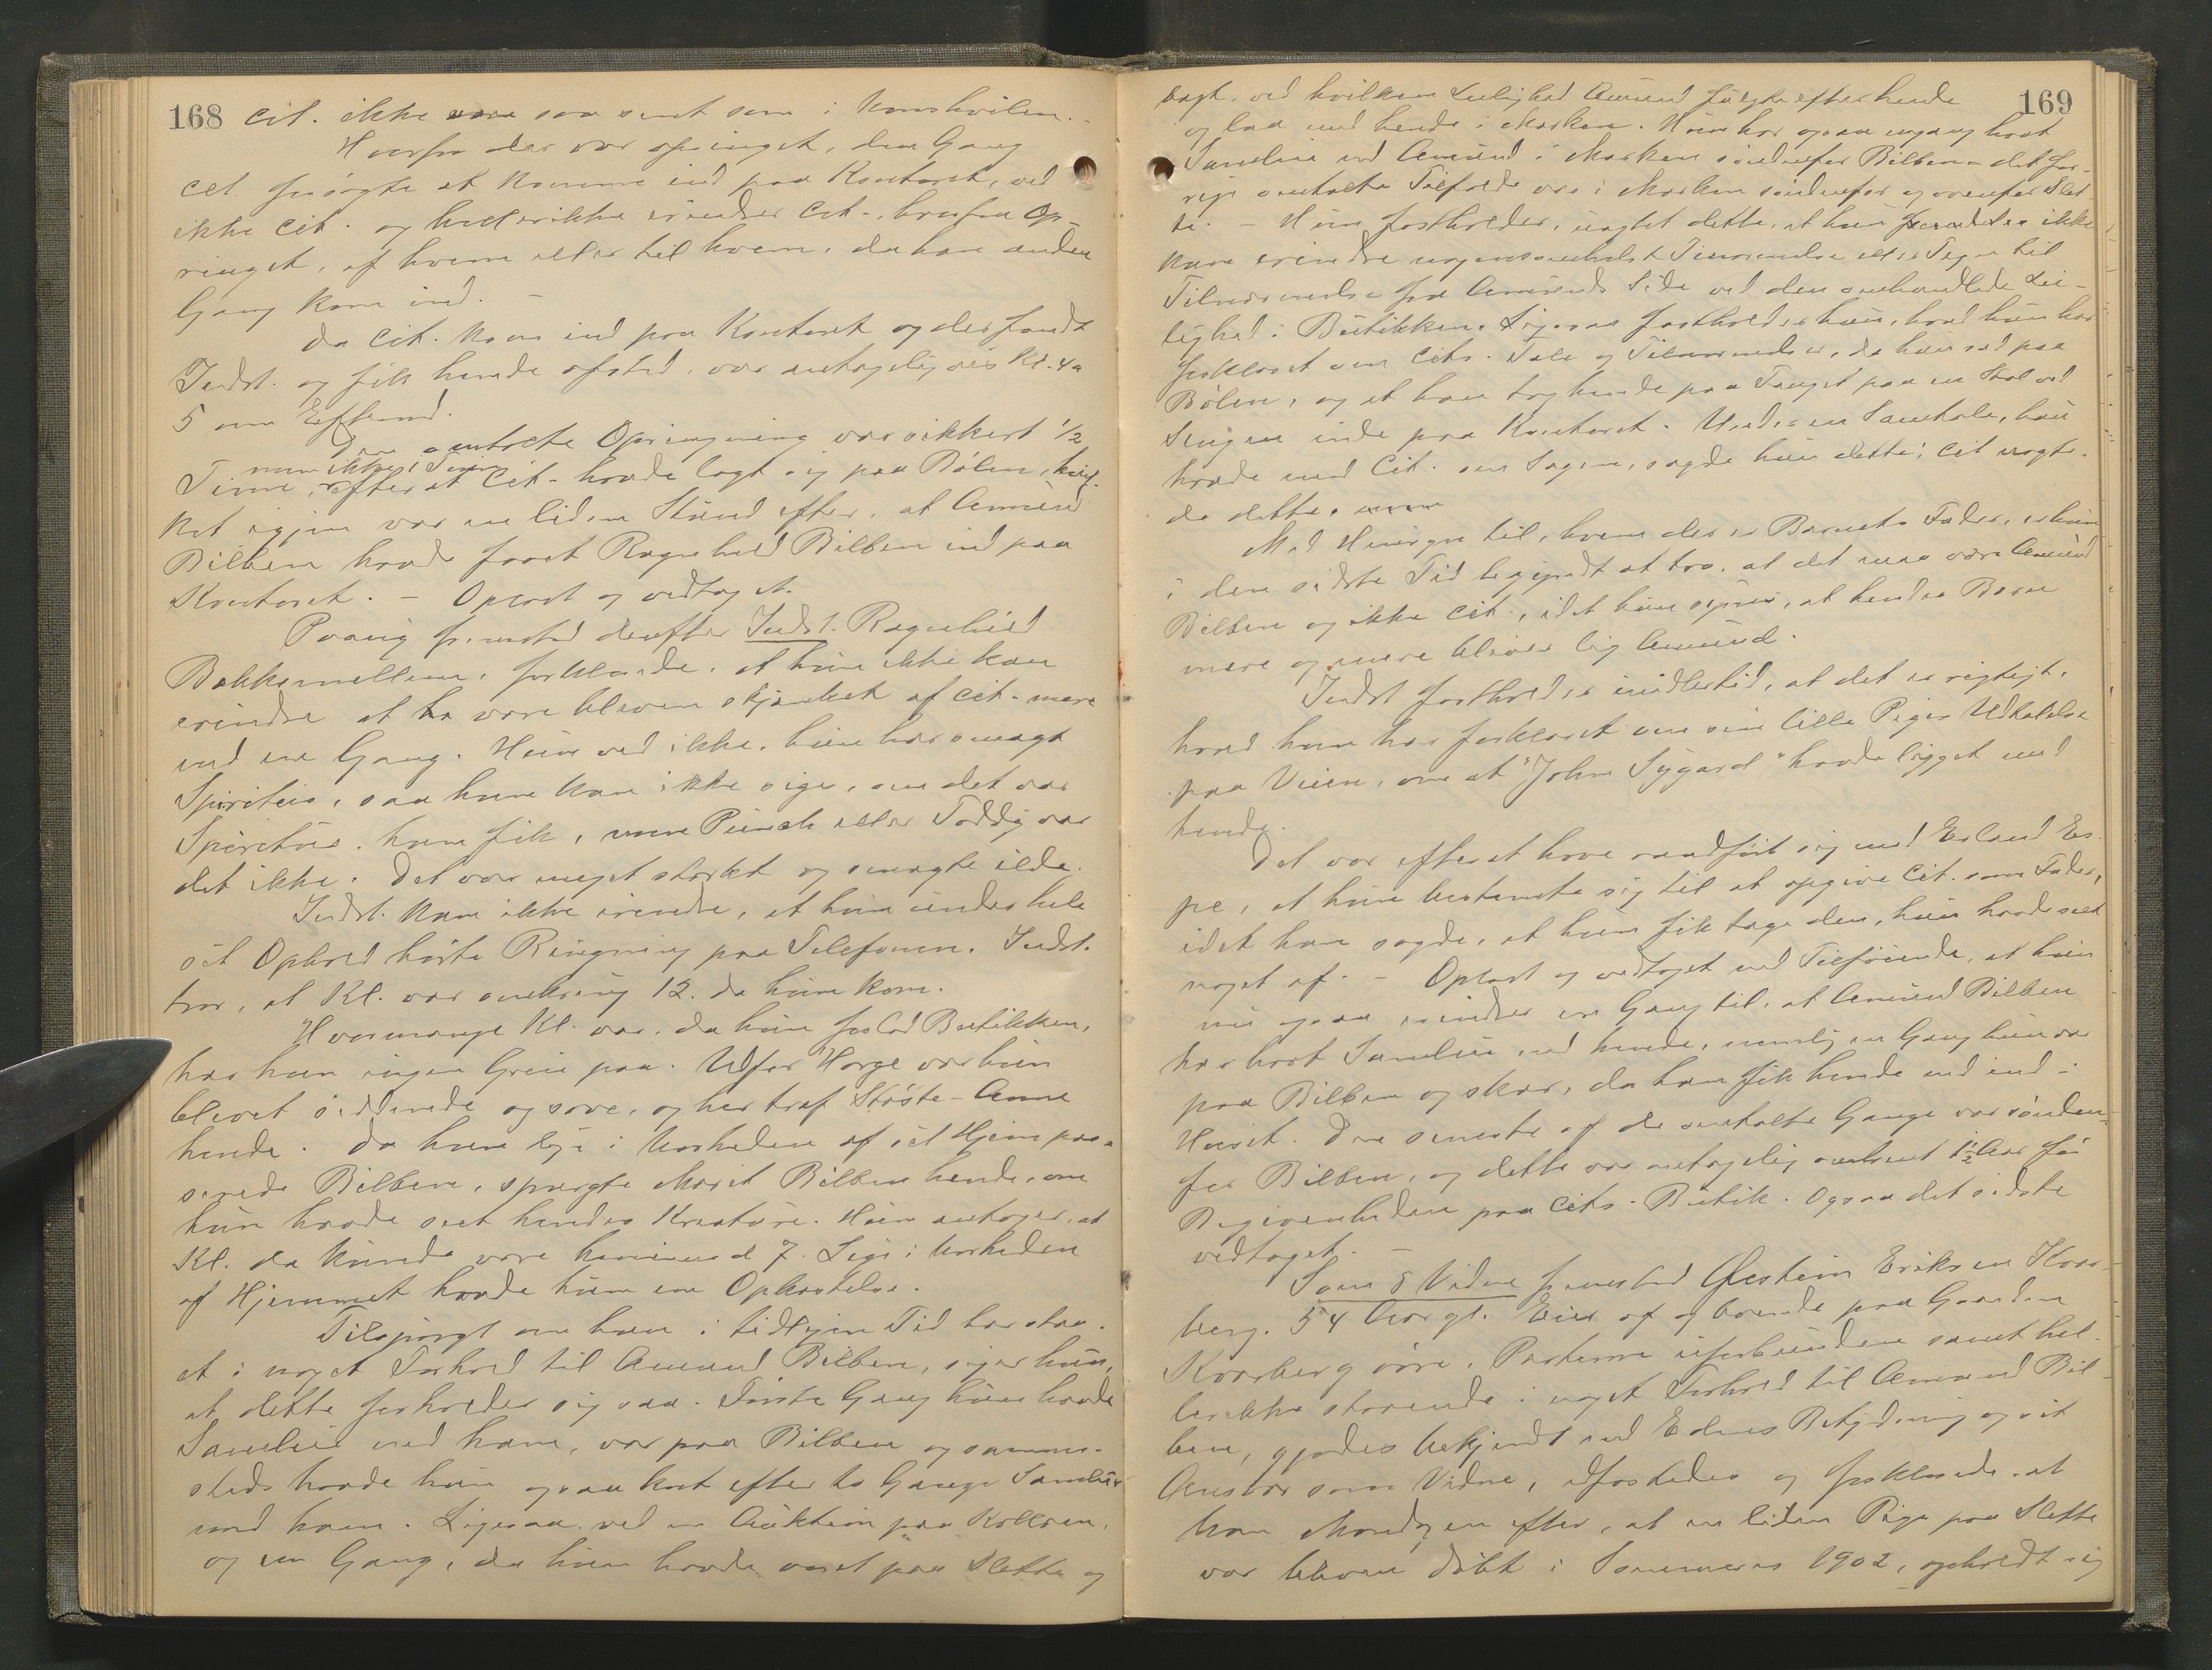 168
cit. ikke saa sent som i Vonshvilen.
Hvorfra der var opringet, den Gang
cit. forsøgte at komme ind paa Kontoret, ved
ikke cit. og hellerikke erindrer cit., hvorfra op-
ringet, af hvem eller til hvem, da han anden
Gang kom ind. –
Da cit. kom ind paa Kontoret og der fandt
Indst. og fik hende afsted, var antageligvis Kl. 4 a
5 om Eftermd.
Den omtalte Opringning var sikkert 1/2
Time, men ikke 1 Time efter at cit. havde lagt sig paa Bølen, hvil-
ket igjen var en liden Stund efter, at Amund
Bilben havde faaet Ragnhild Bilben ind paa
Kontoret. – Oplæst og vedtaget.
Paany fremstod derefter Indst. Ragnhild
Bakkemellem, forklarede, at hun ikke kan
erindre at ha være bleven skjænket af cit. mere
end en Gang. Hun ved ikke, hun har smagt
Spiritus, saa hun kan ikke sige, om det var
Spiritus, hun fik, men Punch eller Toddy var
det ikke. Det var meget stærkt og smagte ilde.
Indst. kan ikke erindre, at hun under hele
sit Ophold hørte Ringning paa Telefonen. Indst.
tror, at Kl. var omkring 12, da hun kom.
Hvormange Kl. var, da hun forlod Butikken,
har hun ingen Greie paa. Udfor Horge var hun
blevet siddende og sove, og her traf Støste-Anne
hende. Da hun lige i Nærheden af sit Hjem pas-
serede Bilben, spurgte Marit Bilben hende, om
hun havde seet hendes Kreature. Hun antager, at
Kl. da kunde være henimod 7. Lige i Nærheden
af Hjemmet havde hun en Opkastelse.
Tilspurgt om hun i tidligere Tid har staa-
et i noget Forhold til Amund Bilben, siger hun,
at dette forholder sig saa. Første Gang hun havde
Samleie med ham, var paa Bilben og samme-
steds havde hun ogsaa kort efter to Gange Samleie
med ham. Ligesaa ved en Auktion paa Kolloen,
og en Gang, da hun havde været paa Slette og
169
bagt, ved hvilken Leilighed Amund fulgte efter hende
og laa med hende i Marken. Hun har ogsaa engang havt
Samleie med Amund i Marken søndenfor Bilben – det for-
rige omtalte Tilfælde var i Marken søndenfor og ovenfor Slet-
te. – Hun fastholder, uagtet dette, at hun fremdeles ikke
kan erindre nogensomhelst Tilnærmelse eller Tegn til
Tilnærmelse fra Amunds Side ved den omhandlede Lei-
lighed i Butikken. Ligesaa fastholder hun, hvad hun har
forklaret om Cits. Tale og Tilnærmelser, da hun sad paa
Bølen, og at han tog hende paa Fanget paa en Stol ved
Sengen inde paa Kontoret. Under en Samtale, hun
havde med Cit. om Sagen, sagde hun dette; Cit nægte-
de dette.
Med Hensyn til, hvem der er Barnets Fader, er hun
i den sidste Tid begyndt at tro, at det maa være Amund
Bilben og ikke cit., idet hun synes, at hendes Barn
mere og mere bliver lig Amund.
Indst fastholder imidlertid, at det er rigtigt,
hvad hun har forklaret om sin lille Piges Udtalelse
paa Veien, om at "John Sygard" havde ligget med
hende.
Det var efter at have raadført sig med Erland Es-
pe, at hun bestemte sig til at opgive Cit. som Fader,
idet han sagde, at hun fik tage den, hun havde seet
noget af. – Oplæst og vedtaget med Tilføiende, at hun
nu ogsaa erindrer en Gang til, at Amund Bilben
har havt Samleie med hende, nemlig en Gang hun var
paa Bilben og skar, da han fik hende med ind i
Huset. Den seneste af de omtalte Gange var sønden-
for Bilben, og dette var antagelig omtrent 1½ Aar før
Begivenheden paa Cits. Butik. Ogsaa det sidste
vedtaget. –
Som 8 Vidne fremstod Østein Eriksen Kvar-
berg. 54 Aar gl. Eier af og boende paa Gaarden
Kvarberg øvre. Parterne uforbunden samt hel-
lerikke staaende i noget Forhold til Amund Bil-
ben, gjordes bekjendt med Edens Betydning og sit
Ansvar som Vidne, edfæstedes og forklarede, at
han Mandagen efter, at en liden Pige paa Slette
var bleven døbt i Sommeren 1902, opholdt sig